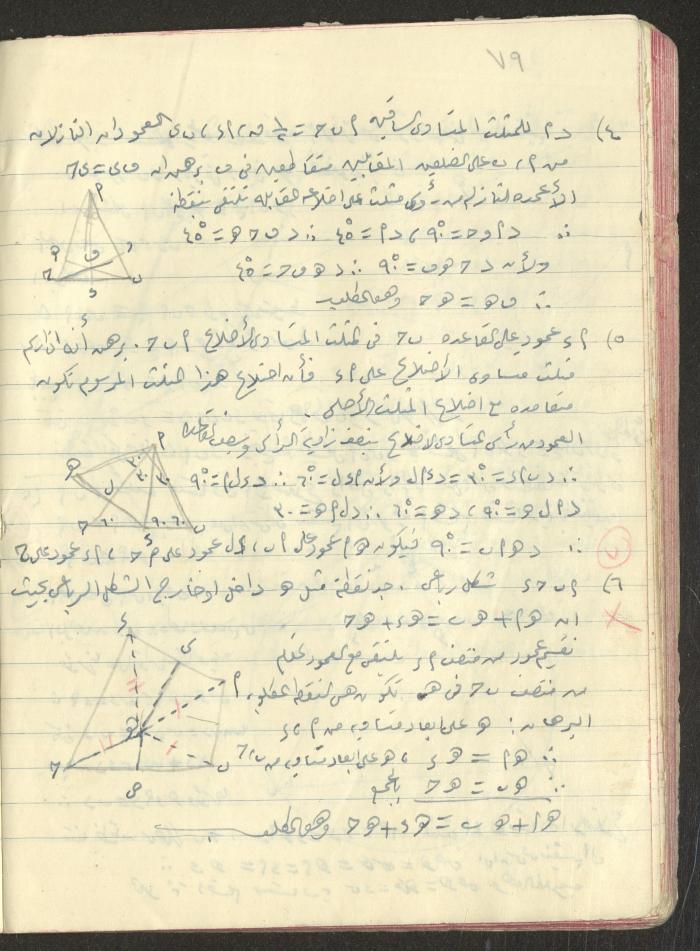 ٧٩
٤) د م للمثلث المتساوى الساقين م ب ح = ½ ق، م ء، ب ى العمودان النازلان
من م، ب على الضلعين المقابلين متقاطعين فى و برهن ان و ى = ى ح
الأعمده النازله من رؤوس مثلث على اضلاعه المقابله تلتقى بنقطة
∴ د م و ح = ٩٠°، د م = ٤٥ ∴ د و ح ه = ٤٥°
ولأن د ح ه و = ٩٠° ∴ د ه و ح = ٤٥°
∴ و ه = ه ح وهو المطلوب
٥) م ء عمود على القاعده ب ح فى المثلث المتساوى الأضلاع م ب ح. برهن أنه اذا رسم
مثلث متساوى الأضلاع على م ء فأن اضلاع هذا المثلث المرسوم تكون
متعامده مع اضلاع المثلث الأصلى.
العمود من رأس المتساوى الاضلاع ينصف زاوية الرأس وينصف القاعدة
∴ د ب م ء = ٣٠° = د ء م ل ولأن م ء ل = ٦٠° ∴ د ء ل م = ٩٠°
د م ل ه = ٩٠°، د ه = ٦٠° ∴ د ل م ه = ٣٠
∴ د ه م ب = ٩٠° فيكون ه م عمود على م ب، ء ل عمود على م ح، م ء عمود على ب ح
٦) م ب ح ء شكل رباعى. جد نقطة مثل ه داخل او خارج الشكل الرباعى بحيث
ان ه م + ه ب = ه ء + ه ح
نقيم عمود من منتصف م ء يلتقى مع العمود المقام
من منتصف ب ح فى ه تكون هى النقطة المطلوبه
البرهان: ه على ابعاد متساويه من م، ء
∴ ه م = ه ء، ه على ابعاد متساويه من ب، ح
∴ ه ب = ه ح بالجمع
ه م + ه ب = ه ء + ه ح وهو المطلوب